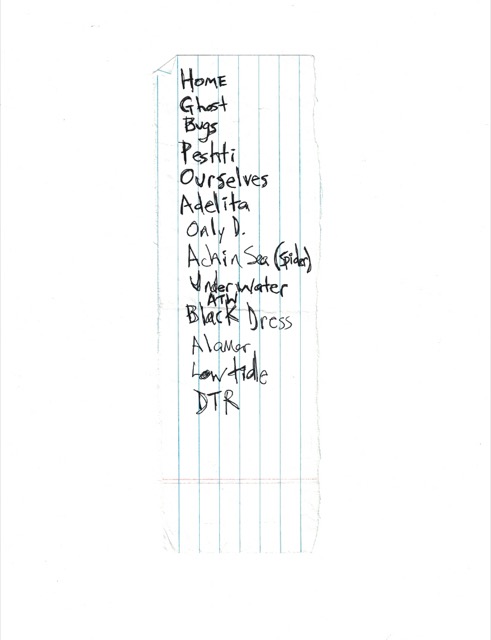 HOME
Ghost
Bugs
Peshti
Ourselves
Adelita
Only D.
Adain Sea (Spider)
Underwater
ATW
Black Dress
Alamer
Low tide
DTR